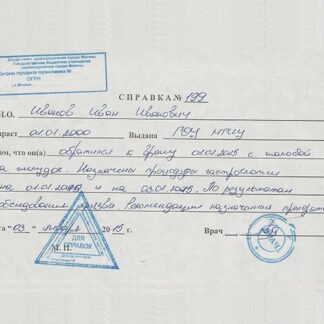 Департамент здравоохранения города Москвы
Государственное бюджетное учреждение
здравоохранения города Москвы
городская поликлиника №
ОГРН
г. Москва
СПРАВКА № 199
И.О. Иванов Иван Иванович
зраст 01.01.2000 Выдана РОУ
ом, что он(а) обратился к врачу 01.01.2015 с жалобой
на желудок. Назначены процедуры гастроскопии
на 01.01.2015 и на 03.01.2015. По результатам
обследования язва. Рекомендации назначенных препаратов
та "03" января 2015 г. Врач
М. П.
ДЛЯ СПРАВОК
ВРАЧ